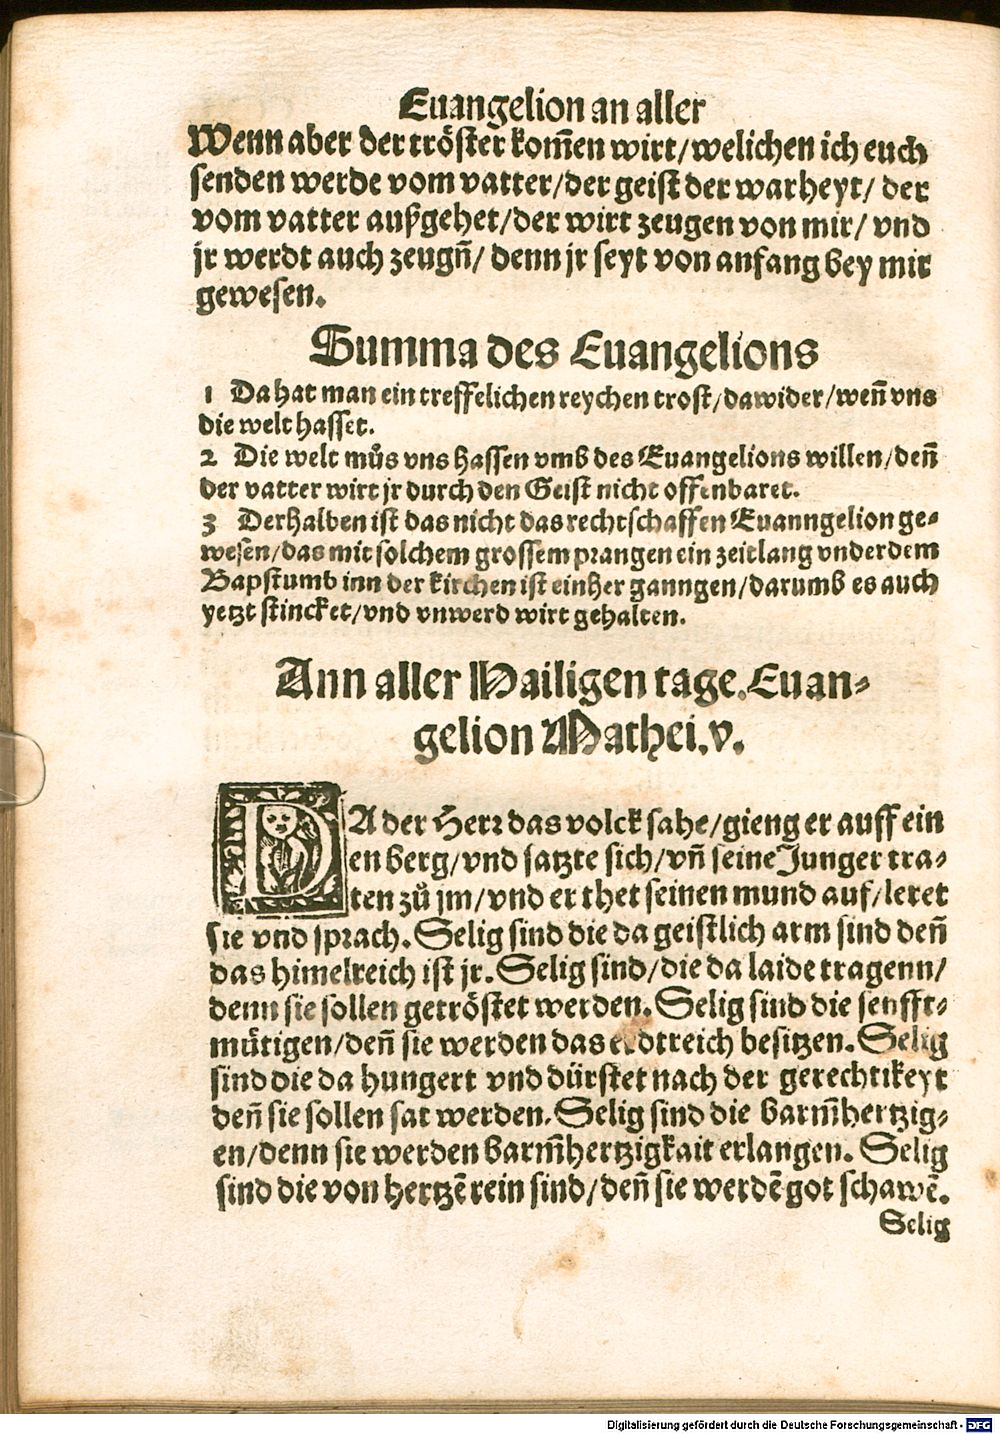 Euangelion an aller
Wenn aber der tröster kom̃en wirt/welichen ich euch
senden werde vom vatter/der geist der warheyt/ der
vom vatter außgehet/der wirt zeugen von mir/ vnd
jr werdt auch zeugñ/ denn jr seyt von anfang bey mir
gewesen.
Summa des Euangelions
1 Da hat man ein treffelichen reychen trost/dawider/weñ vns
die welt hasset.
2 Die welt můs vns hassen vmb des Euangelions willen/deñ
der vatter wirt jr durch den Geist nicht offenbaret.
3 Derhalben ist das nicht das rechtschaffen Euanngelion ge-
wesen/das mit solchem grossem prangen ein zeitlang vnder dem
Bapstumb inn der kirchen ist einher ganngen/darumb es auch
yetzt stincket/vnd vnwerd wirt gehalten.
Ann aller Hailigen tage. Euan-
gelion Mathei. v.
DA der Herr das volck sahe/gieng er auff ein
en berg/vnd satzte sich/vñ seine Junger tra-
ten zů jm/vnd er thet seinen mund auf/leret
sie vnd sprach. Selig sind die da geistlich arm sind deñ
das himelreich ist jr. Selig sind/die da laide tragenn/
denn sie sollen getröstet werden. Selig sind die senfft-
mütigen/deñ sie werden das erdtreich besitzen. Selig
sind die da hungert vnd dürstet nach der gerechtikeyt
deñ sie sollen sat werden. Selig sind die barm̃hertzig-
en/denn sie werden barm̃hertzigkait erlangen. Selig
sind die von hertzẽ rein sind/deñ sie werdẽ got schawẽ.
Selig
Digitalisierung gefördert durch die Deutsche Forschungsgemeinschaft - DFG